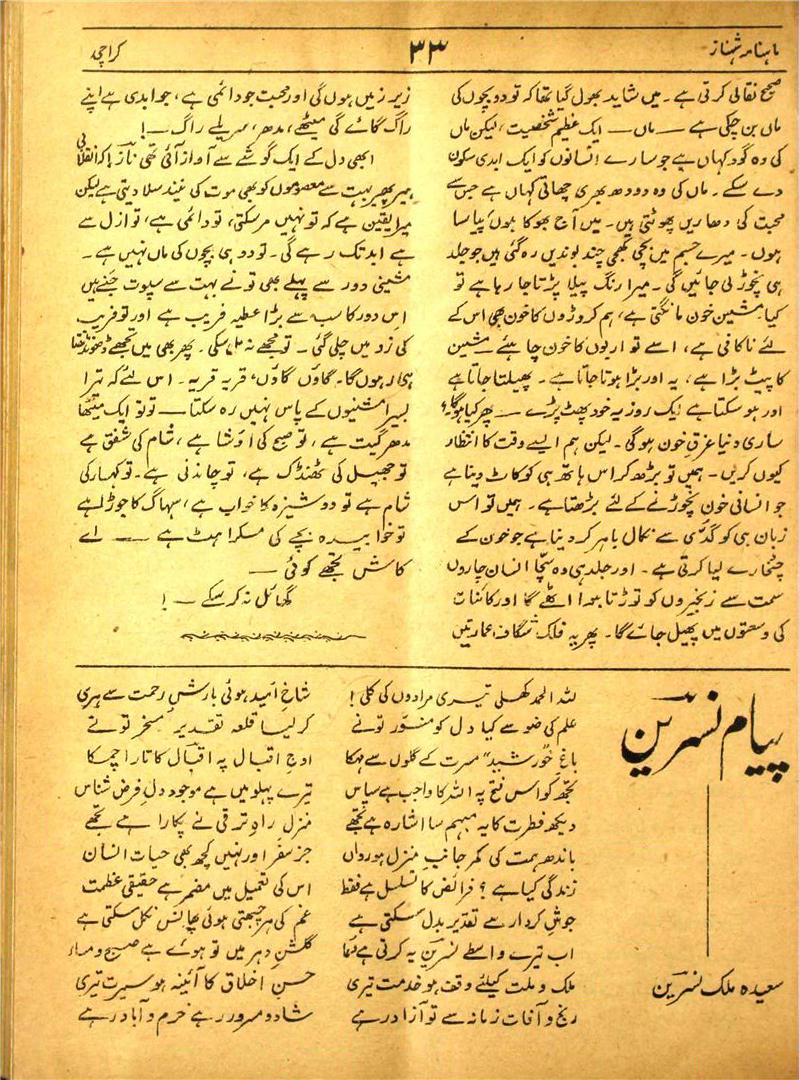 ماہنامہ شہناز
۳۳
کراچی
صحیح نقالی کرتی ہے۔ میں شاید بھول گیا تھا کہ تو دو بچوں کی
ماں بن چکی ہے — ماں — ایک عظیم شخصیت، لیکن ماں
کی وہ گود کہاں ہے جو سارے انسانوں کو ایک ابدی سکون
دے سکے۔ ماں کی وہ دودھ بھری چھاتی کہاں ہے جس سے
محبت کی دھاریں پھوٹتی ہیں۔ میں آج بھوکا ہوں پیاسا
ہوں۔ میرے جسم میں بچی کھچی چند بوندیں رہ گئی ہیں جو جلد
ہی نچوڑ لی جائیں گی۔ میرا رنگ پیلا پڑتا جا رہا ہے تو
کیا مشین خون مانگتی ہے، ہم کروڑوں کا خون بھی اس کے
لئے ناکافی ہے، اسے تو اربوں کا خون چاہیئے — مشین
کا پیٹ بڑا ہے، یہ اور بڑا ہوتا جاتا ہے۔ پھیلتا جاتا ہے
اور ہو سکتا ہے ایک روز یہ خود پھٹ پڑے — پھر کیا ہوگا؟
ساری دنیا غرقِ خون ہوگی۔ لیکن ہم ایسے وقت کا انتظار
کیوں کریں۔ ہمیں تو بڑھ کر اس ہاتھ ہی کو کاٹ دینا ہے
جو انسانی خون نچوڑنے کے لئے بڑھتا ہے۔ ہمیں تو اس
زبان ہی کو گدّی سے نکال باہر کر دینا ہے جو خون کے
چٹخارے لیا کرتی ہے۔ اور جلد ہی وہ سچا انسان چاروں
سمت سے زنجیروں کو توڑتا ہوا اٹھے گا اور کائنات
کی وسعتوں میں پھیل جائے گا۔ پھر یہ فلک شگاف عمارتیں
زیر زمیں ہوں گی اور محبت جو دائمی ہے، جو ابدی ہے اپنے
راگ گائے گی میٹھے، مدھر، سریلے راگ —!
ابھی دل کے ایک گوشے سے آواز آئی تھی نازؔ! کہ انقلابی
ہیر پھیر بہت سے معصوموں کو بھی موت کی نیند سلا دیتی ہے لیکن
میرا یقین ہے کہ تو نہیں مر سکتی، تو دائمی ہے، تو ازل سے
ہے ابد تک رہے گی۔ تو دو ہی بچوں کی ماں نہیں ہے۔
مشینی دور سے پہلے بھی تو نے بہت سے سپوت جنے ہیں
اس دور کا سب سے بڑا عطیہ فریب ہے اور تو فریب
کی زد میں چلی گئی۔ تو مجھے نہ مل سکی۔ پھر بھی میں تجھے ڈھونڈتا
ہی رہوں گا۔ گاؤں گاؤں، قریہ قریہ۔ اس لئے کہ تیرا
بسیرا مشینوں کے پاس نہیں رہ سکتا — تو تو ایک میٹھا
مدھر گیت ہے، تو صبح کی اوشا ہے، شام کی شفق ہے
تو جھیل کی ٹھنڈک ہے، تو چاندنی ہے۔ تو کہسار کی
شام ہے تو دوشیزہ کا خواب ہے، سہاگ کا جوڑا ہے
تو خوابیدہ بچے کی مسکراہٹ ہے — اے
کاش تجھے کوئی —
گھائل نہ کر سکے —!
پیام نسرینؔ
سعیدہ ملک نسرینؔ
للہ الحمد کھلی تیری مرادوں کی کلی! شاخِ امید ہوئی بارشِ رحمت سے ہری
علم کی ضو سے کیا دل کو منور تو نے کر لیا قلعہ تقدیر مسخر تو نے
باغِ "خورشید" مسرت کے گلوں سے مہکا اوجِ اقبال پہ اقبال کا تارا چمکا
تجھ کو اس فتح پہ اللہ کا واجب ہے سپاس تیرے پہلو میں ہے موجود دلِ فرض شناس
دیکھ فطرت کا یہ مبہم سا اشارہ ہے تجھے منزلِ راہِ ترقی نے پکارا ہے تجھے
باندھ ہمت کی کمر جانبِ منزل ہو رواں جز سفر اور نہیں کچھ بھی حیاتِ انساں
زندگی کیا ہے؟ فرائض کا تسلسل ہے فقط اس کی تعمیل میں مضمر ہے حقیقی عظمت
جوشِ کردار سے تقدیر بدل سکتی ہے غم کی ہر چبھتی ہوئی پھانس نکل سکتی ہے
اب تیرے واسطے نسرینؔ یہ کرتی ہے دعا گلشنِ دہر میں تو ہوئے ہے صبح و مساء
ملک و ملت کیلئے وقف ہو خدمت تیری حسنِ اخلاق کا آئینہ ہو سیرت تیری
رنج و آفاتِ زمانہ سے تو آزاد رہے شاد و مسرور رہے خرم و آباد رہے